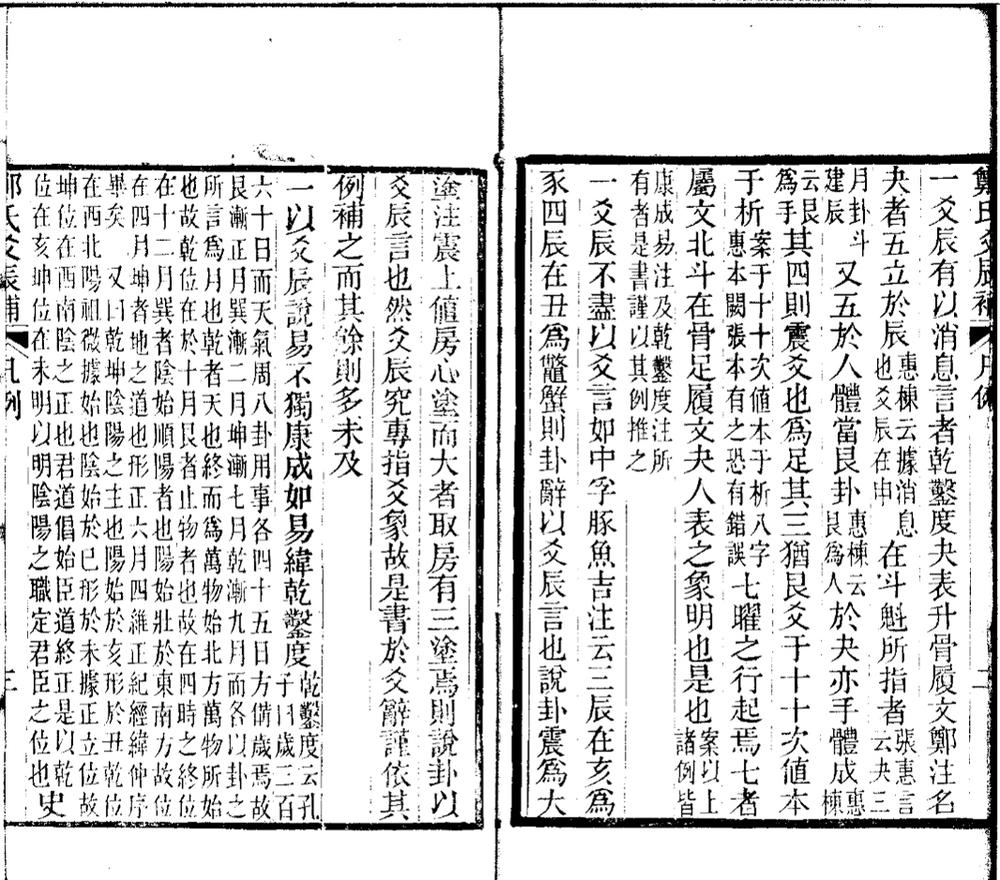 鄭氏爻辰補 凡例 二
一爻辰有以消息言者乾鑿度夬表升骨履文鄭注名
夬者五立於辰惠棟云據消息也爻辰在申在斗魁所指者張惠言云夬三
月卦斗建辰又五於人體當艮卦惠棟云艮爲人於夬亦手體成惠棟
云艮爲手其四則震爻也爲足其三猶艮爻于十十次値本
于析案于十十次値本于析八字惠本闕張本有之恐有錯誤七曜之行起焉七者
屬文北斗在骨足履文夬人表之象明也是也案以上諸例皆
康成易注及乾鑿度注所有者是書謹以其例推之
一爻辰不盡以爻言如中孚豚魚吉注云三辰在亥爲
豕四辰在丑爲鼈蟹則卦辭以爻辰言也說卦震爲大
塗注震上値房心塗而大者取房有三塗焉則說卦以
爻辰言也然爻辰究專指爻象故是書於爻辭謹依其
例補之而其餘則多未及
一以爻辰說易不獨康成如易緯乾鑿度乾鑿度云孔子曰歲三百
六十日而天氣周八卦用事各四十五日方備歲焉故
艮漸正月巽漸三月坤漸七月乾漸九月而各以卦之
所言爲月也乾者天也終而爲萬物始北方萬物所始
也故乾位在於十月艮者止物者也故在四時之終位
在十二月巽者陰始順陽者也陽始壯於東南方故位
在四月坤者地之道也形正六月四維正紀經緯仲序
畢矣 又曰乾坤陰陽之主也陽始於亥形於丑乾位
在西北陽祖微據始也陰始於巳形於未據正立位故
坤位在西南陰之正也君道倡始臣道終正是以乾
位在亥坤位在未明以明陰陽之職定君臣之位也史
鄭氏爻辰補 凡例 三